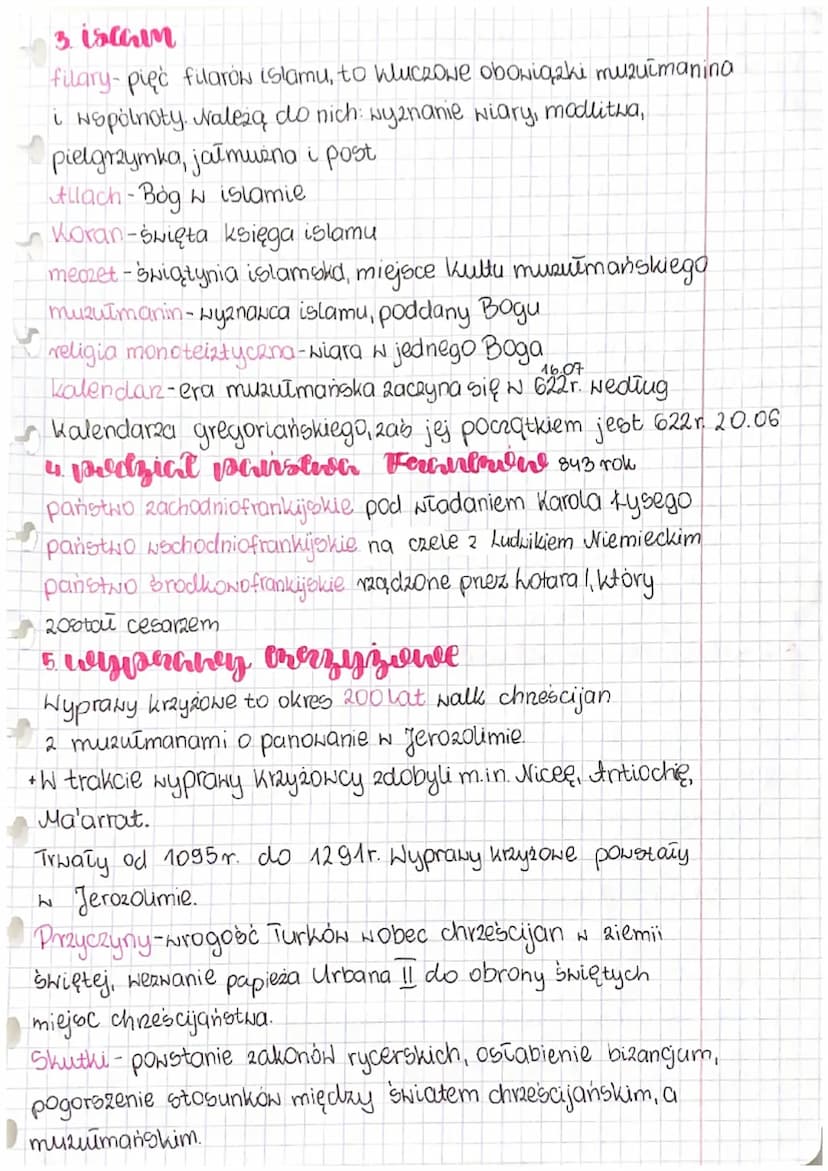 3. islam
filary- pięć filarów islamu, to kluczowe obowiązki muzułmanina
i wspólnoty. Należą do nich: wyznanie wiary, modlitwa,
pielgrzymka, jałmużna i post
Allach - Bóg w islamie
Koran - święta księga islamu
meczet - świątynia islamska, miejsce kultu muzułmańskiego
muzułmanin- wyznawca islamu, poddany Bogu
religia monoteiztyczna-wiara w jednego Boga
16.07
kalendarz-era muzułmańska zaczyna się w 622r. według
kalendarza gregoriańskiego, zaś jej początkiem jest 622r. 20.06
4. podział państwa Franków 843 rok
państwo zachodniofrankijskie pod władaniem Karola Łysego
państwo wschodniofrankijskie na czele z Ludwikiem Niemieckim
państwo środkowofrankijskie rządzone przez Lotara I, który
został cesarzem
5. wyprawy krzyżowe
Wyprawy krzyżowe to okres 200 lat walk chrześcijan
z muzułmanami o panowanie w Jerozolimie.
+W trakcie wyprawy krzyżowcy zdobyli m.in. Niceę, Antiochię,
Ma'arrat.
Trwały od 1095r. do 1291r. Wyprawy krzyżowe powstały
w Jerozolimie.
Przyczyny-wrogość Turków wobec chrześcijan w ziemii
świętej, wezwanie papieża Urbana II do obrony świętych
miejsc chrześcijaństwa.
Skutki - powstanie zakonów rycerskich, osłabienie bizancjum,
pogorszenie stosunków między światem chrześcijańskim, a
muzułmańskim.